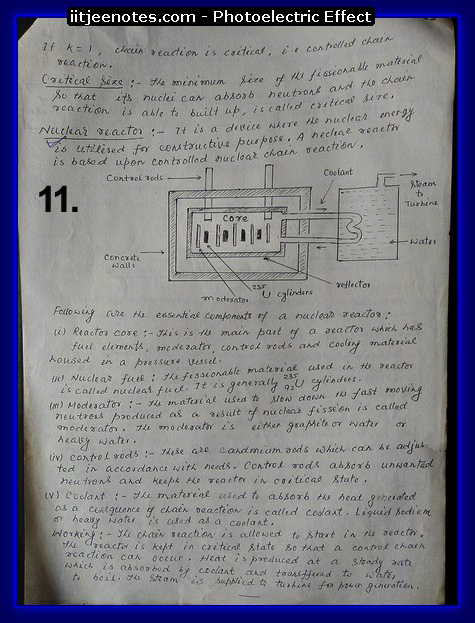 iitjeenotes.com - Photoelectric Effect
If K = 1, chain reaction is critical, i.e controlled chain
reaction.
Critical Size :- The minimum size of the fissionable material
so that its nuclei can absorb neutrons and the chain
reaction is able to built up, is called critical size.
Nuclear reactor :- It is a device where the nuclear energy
is utilised for constructive purpose. A neclear reactor
is based upon controlled nuclear chain reaction.
11.
Control rods
Coolant
Steam
to
Turbine
Core
Water
Concrete
walls
moderator
235
U cylinders
reflector
Following are the essential components of a nuclear reactor:
(i) Reactor core :- This is the main part of a reactor which has
fuel elements, moderator, control rods and cooling material
housed in a pressure vessel.
(ii) Nuclear fuel : The fissionable material used in the reactor
is called nuclear fuel. It is generally 235 92 U cylinders.
(iii) Moderator :- The material used to slow down the fast moving
neutrons produced as a result of nuclear fission is called
moderator. The moderator is either graphite or water or
heavy water.
(iv) Control rods :- These are candmium rods which can be adjus-
ted in accordance with needs. Control rods absorb unwanted
neutrons and keeps the reactor in critical state.
(v) Coolant :- The material used to absorb the heat generated
as a consequence of chain reaction is called coolant. Liquid Sodium
or heavy water is used as a coolant.
Working :- The chain reaction is allowed to start in the reactor.
The reactor is kept in critical state so that a control chain
reaction can occur. Heat is produced at a steady rate
which is absorbed by coolant and transffered to water
to boil. The steam is supplied to turbine for power generation.